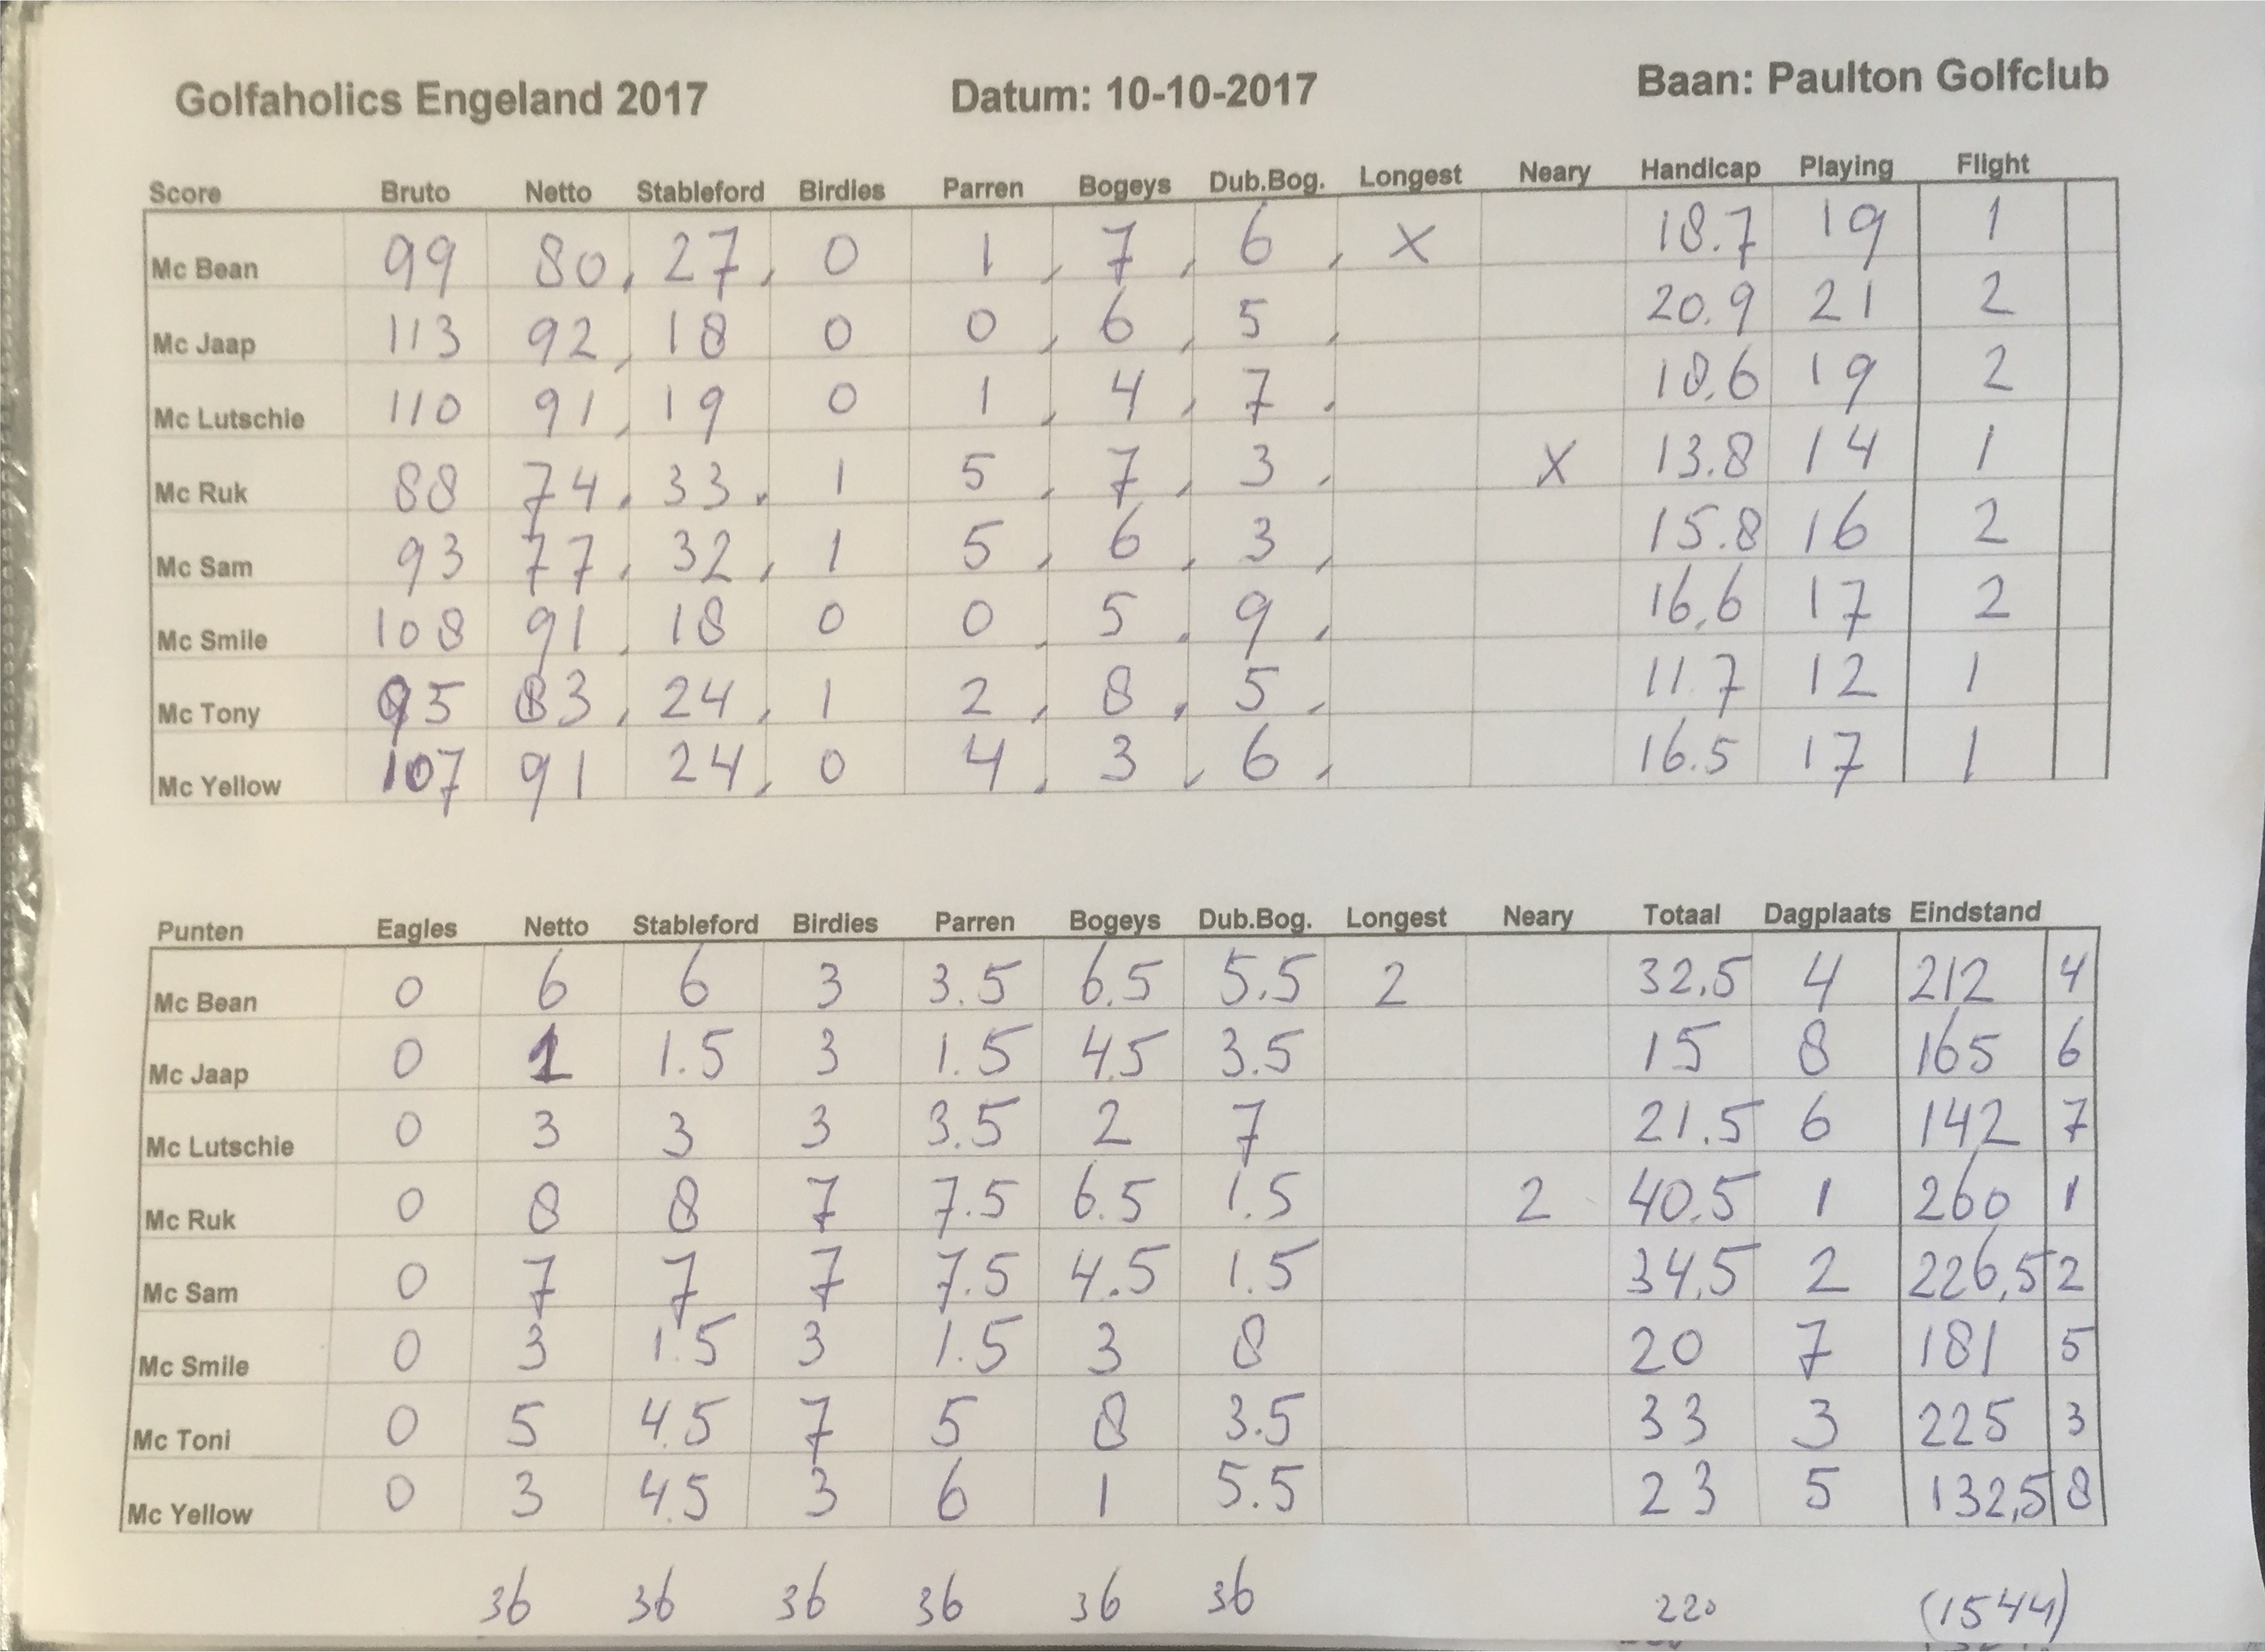 Golfaholics Engeland 2017 Datum: 10-10-2017 Baan: Paulton Golfclub
Score Bruto Netto Stableford Birdies Parren Bogeys Dub.Bog. Longest Neary Handicap Playing Flight
Mc Bean 99 80 27 0 1 7 6 X 18.7 19 1
Mc Jaap 113 92 18 0 0 6 5 20.9 21 2
Mc Lutschie 110 91 19 0 1 4 7 18.6 19 2
Mc Ruk 88 74 33 1 5 7 3 X 13.8 14 1
Mc Sam 93 77 32 1 5 6 3 15.8 16 2
Mc Smile 108 91 18 0 0 5 9 16,6 17 2
Mc Tony 95 83 24 1 2 8 5 11.7 12 1
Mc Yellow 107 91 24 0 4 3 6 16.5 17 1
Punten Eagles Netto Stableford Birdies Parren Bogeys Dub.Bog. Longest Neary Totaal Dagplaats Eindstand
Mc Bean 0 6 6 3 3.5 6.5 5.5 2 32,5 4 212 4
Mc Jaap 0 1 1.5 3 1.5 4.5 3.5 15 8 165 6
Mc Lutschie 0 3 3 3 3.5 2 7 21.5 6 142 7
Mc Ruk 0 8 8 7 7.5 6.5 1.5 2 40.5 1 260 1
Mc Sam 0 7 7 7 7.5 4.5 1.5 34,5 2 226,5 2
Mc Smile 0 3 1.5 3 1.5 3 8 20 7 181 5
Mc Toni 0 5 4.5 7 5 8 3.5 33 3 225 3
Mc Yellow 0 3 4.5 3 6 1 5.5 23 5 132,5 8
36 36 36 36 36 36 220 (1544)